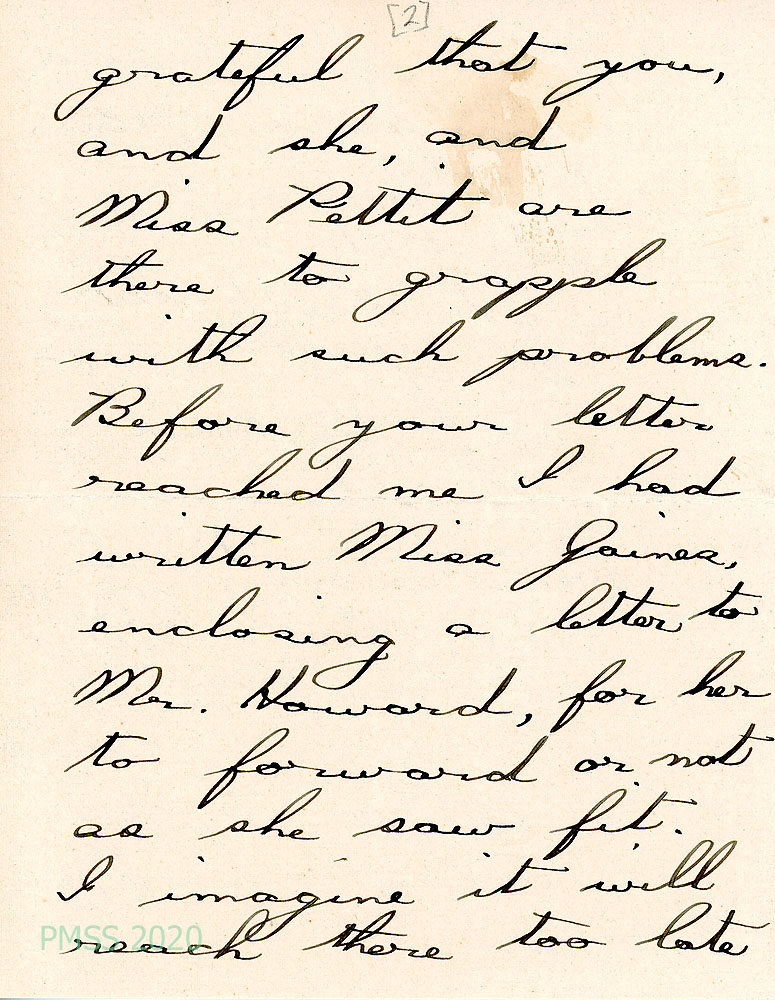 [2]
grateful that you,
and she, and
Miss Pettit are
there to grapple
with such problems.
Before your letter
reached me I had
written Miss Gaines,
enclosing a letter to
Mr. Howard, for her
to forward or not
as she saw fit.
I imagine it will
reach there too late
PMSS 2020